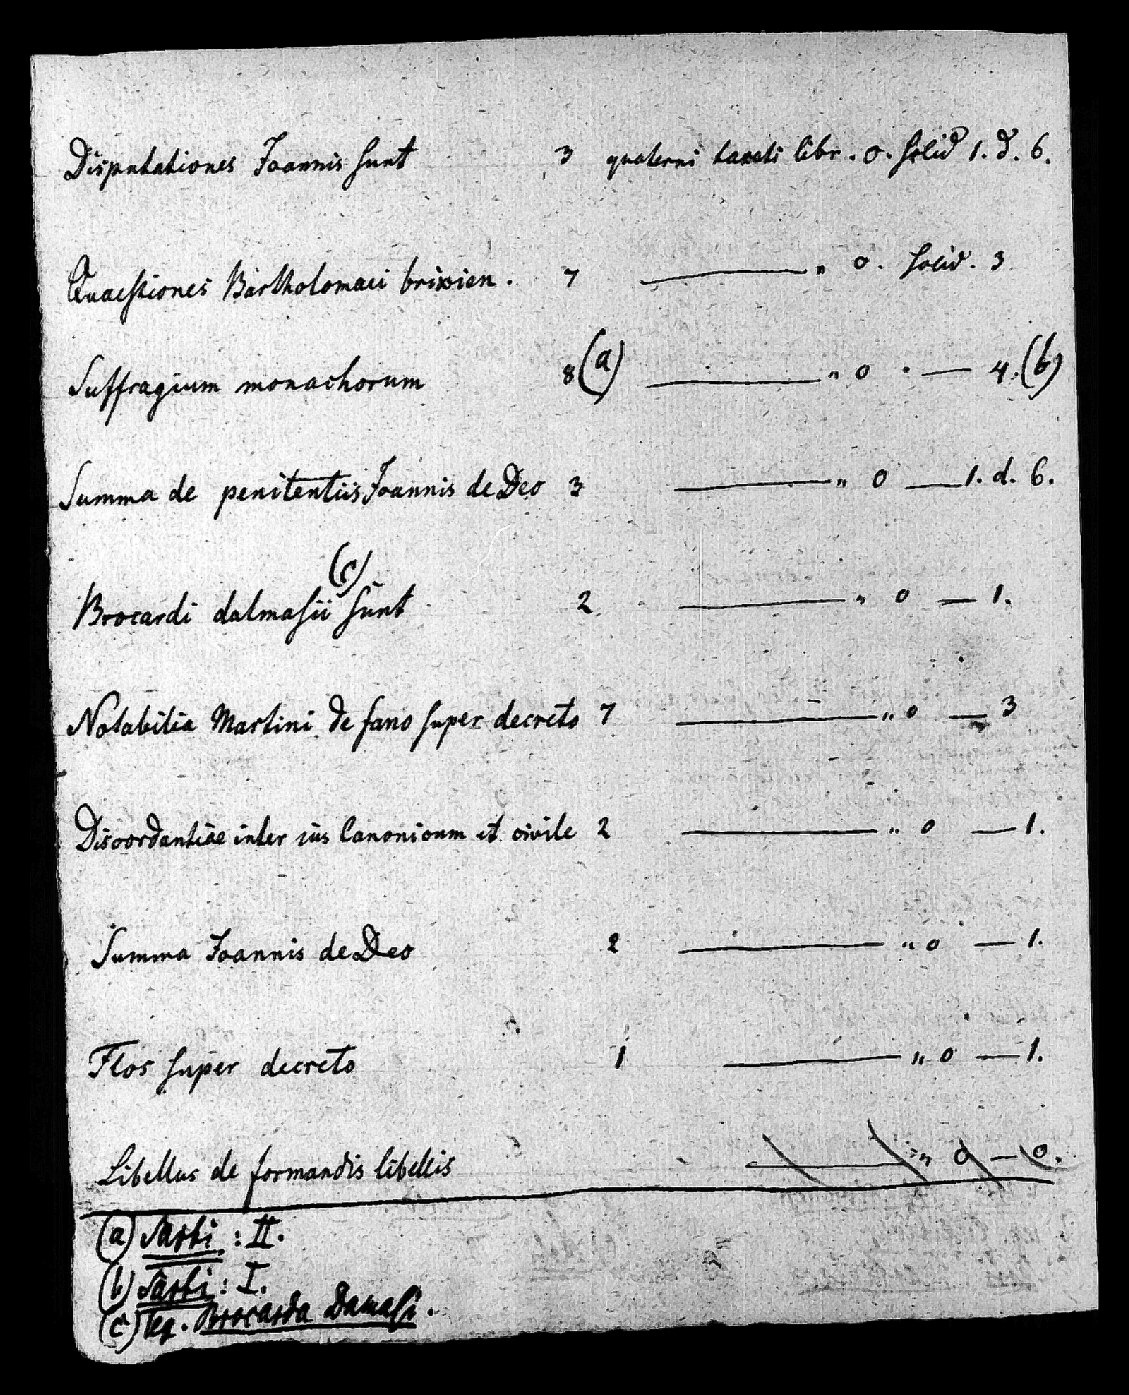 Disputationes Joannis sunt 3 quaterni taxati libr. 0. solid 1. d. 6.
Quaestiones Bartholomaei brixien. 7 ——— " 0. solid. 3
Suffragium monachorum 8 (a) ——— " 0 · — 4. (b)
Summa de penitentiis Joannis de Deo 3 ——— " 0 — 1. d. 6.
Brocardi dalmasii (c) sunt 2 ——— " 0 — 1.
Notabilia Martini de fano super decreto 7 ——— " 0 — 3
Discordantiae inter ius Canonicum et civile 2 ——— " 0 — 1.
Summa Joannis de Deo 2 ——— " 0 — 1.
Flos super decreto 1 ——— " 0 — 1.
Libellus de formandis libellis ——— " 0 — 0.
(a) Sarti : II.
(b) Sarti : I.
(c) leg. Brocarda Damasi.